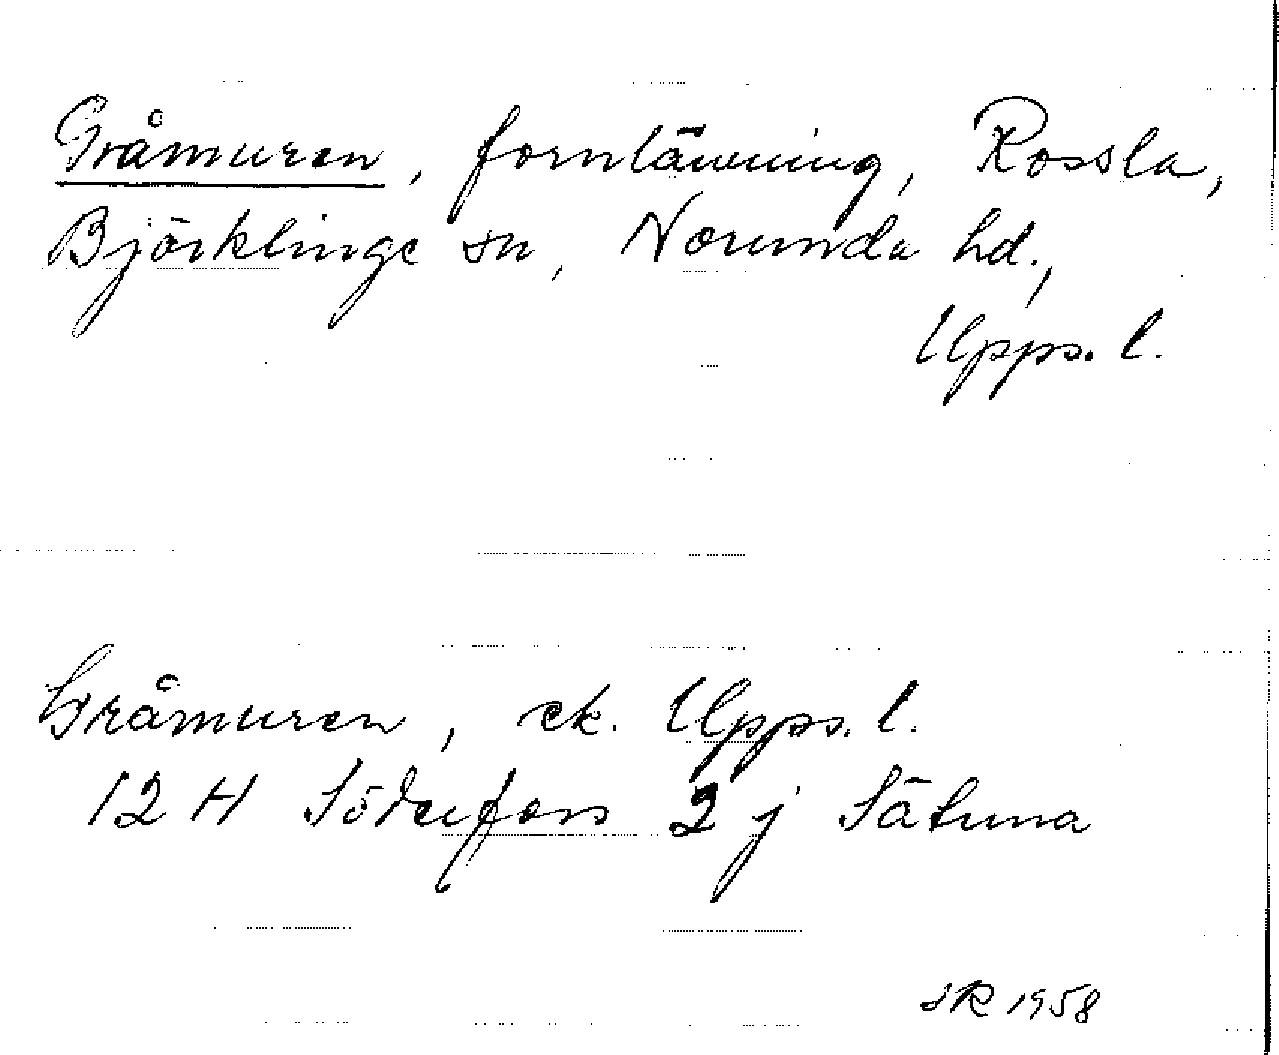 Gråmuren, fornlämning, Rossla,
Björklinge sn, Norunda hd.,
Upps. l.
Gråmuren, ek. Upps. l.
12 H Söderfors 2 j Sätuna
SR 1958